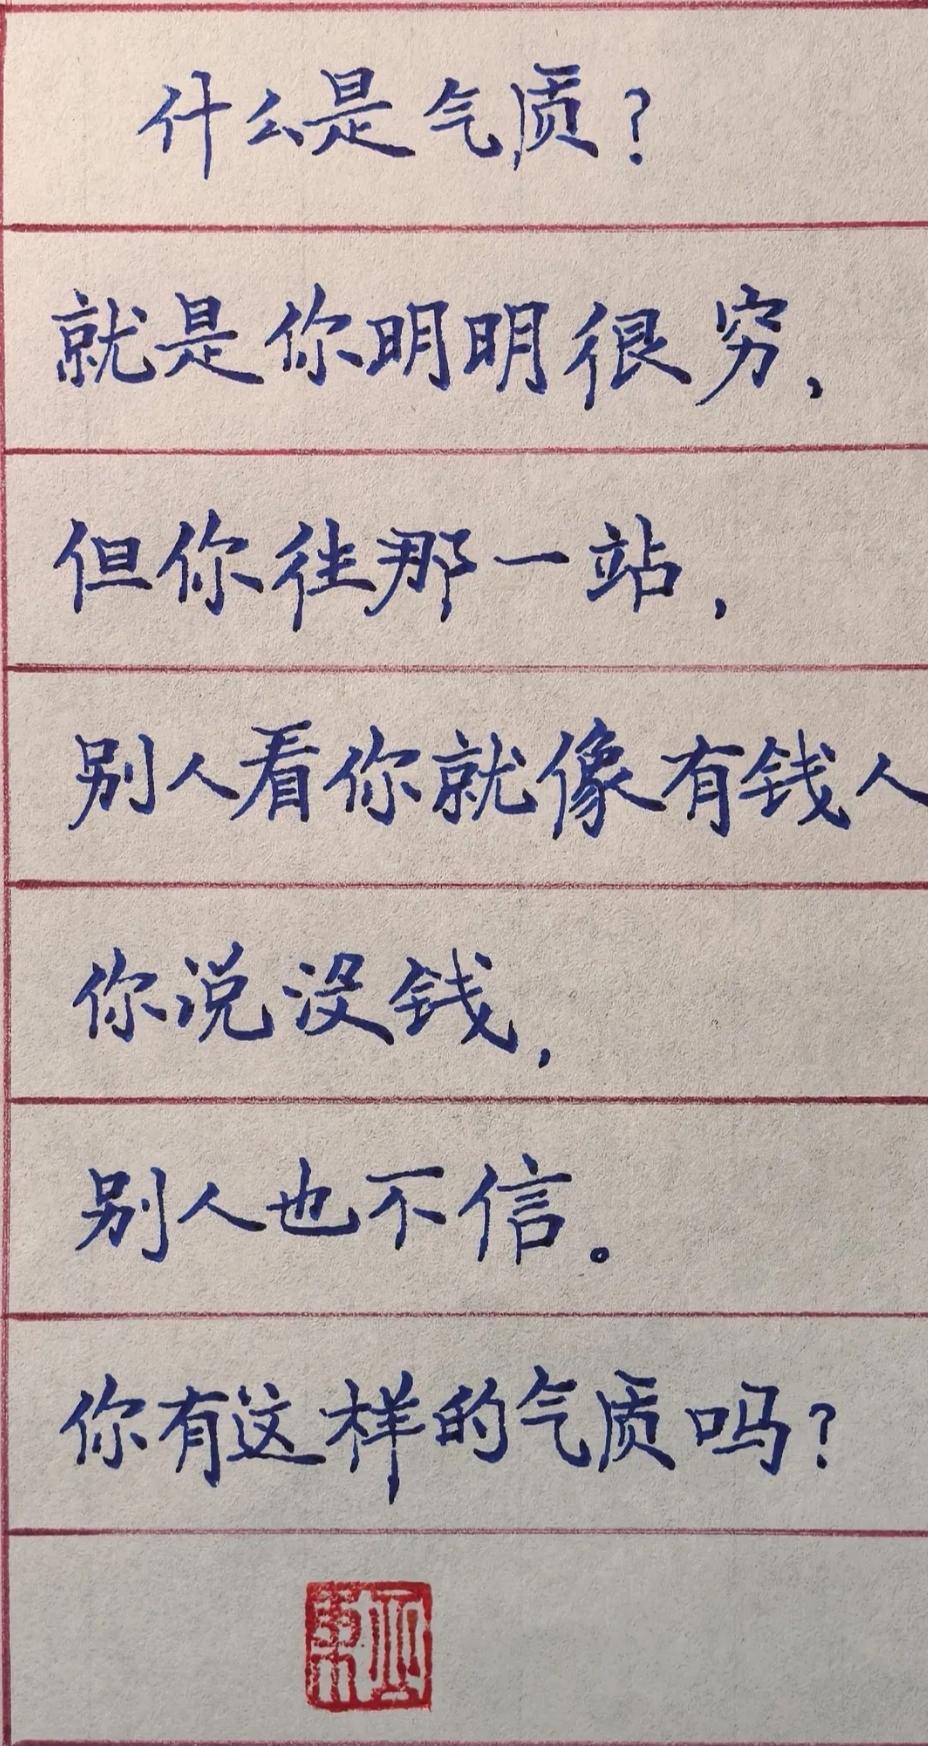 什么是气质?
就是你明明很穷,
但你往那一站,
别人看你就像有钱人
你说没钱,
别人也不信。
你有这样的气质吗?